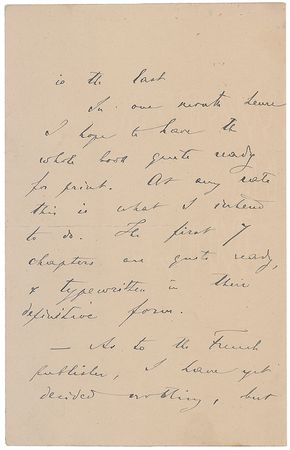 is the last
In one month hence
I hope to have the
whole book quite ready
for print. At any rate
this is what I intend
to do. The first 7
chapters are quite ready,
& typewritten in their
definitive form.
— As to the French
publisher, I have yet
decided nothing, but